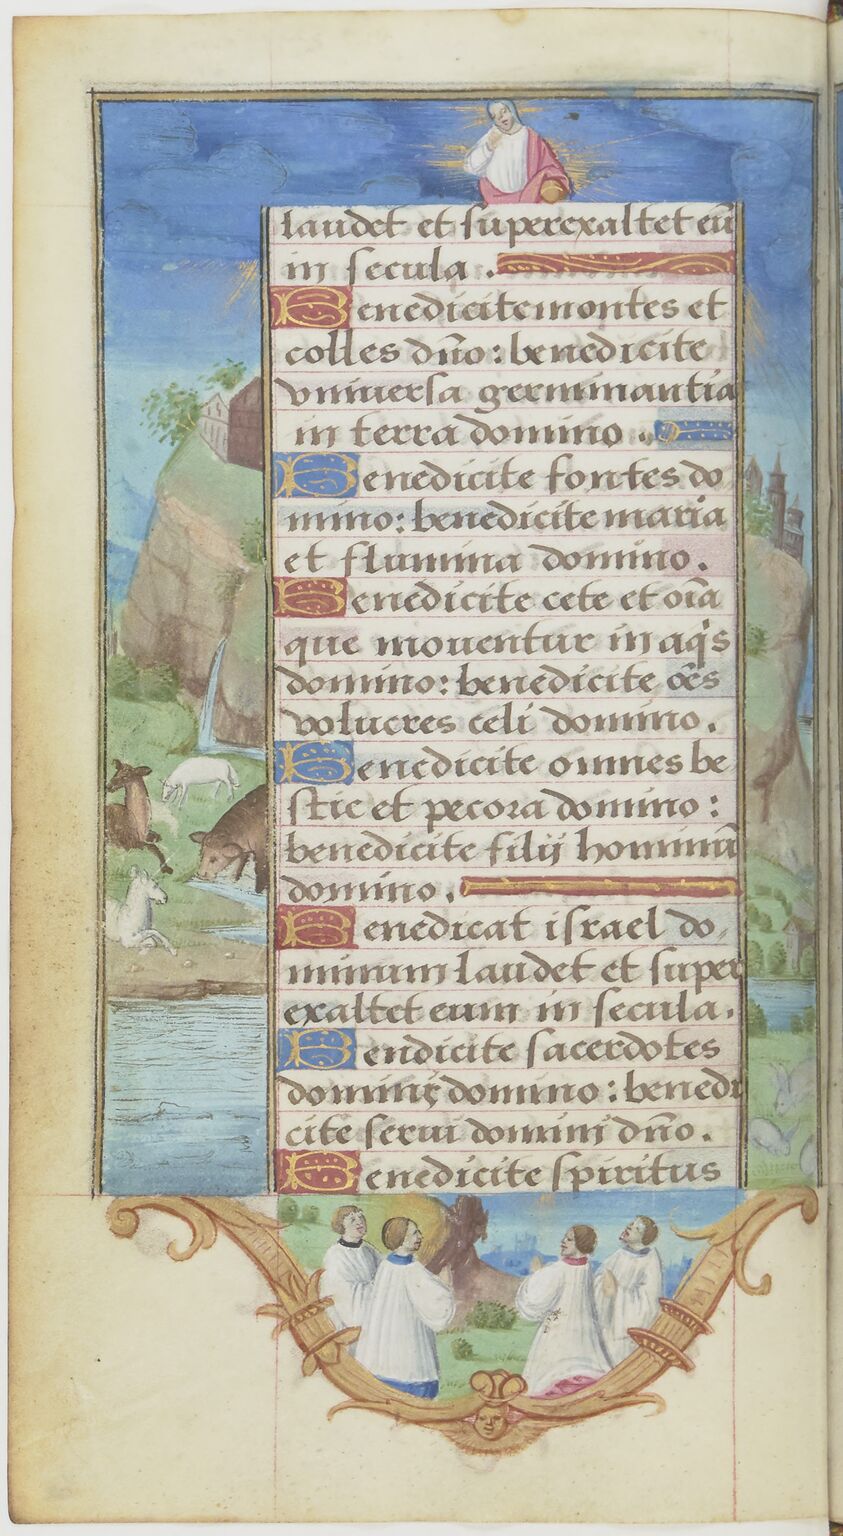 laudet et superexaltet eū
in secula.
Benedicite montes et
colles dn̄o: benedicite
vniuersa germinantia
in terra domino.
Benedicite fontes do
mino: benedicite maria
et flumina domino.
Benedicite cete et oīa
que mouentur in aq̄s
domino: benedicite oēs
volucres celi domino.
Benedicite omnes be
stie et pecora domino:
benedicite filij hominū
domino.
Benedicat israel do
minum laudet et super
exaltet eum in secula.
Bendicite sacerdotes
domini domino: benedi
cite serui domini dn̄o.
Benedicite spiritus